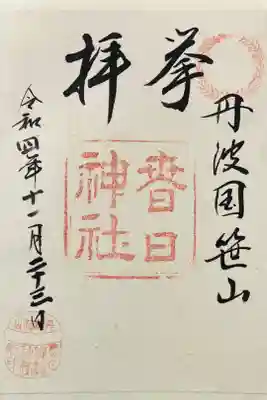 丹波国笹山
奉拝
春日
神社
令和四年十一月二十三日